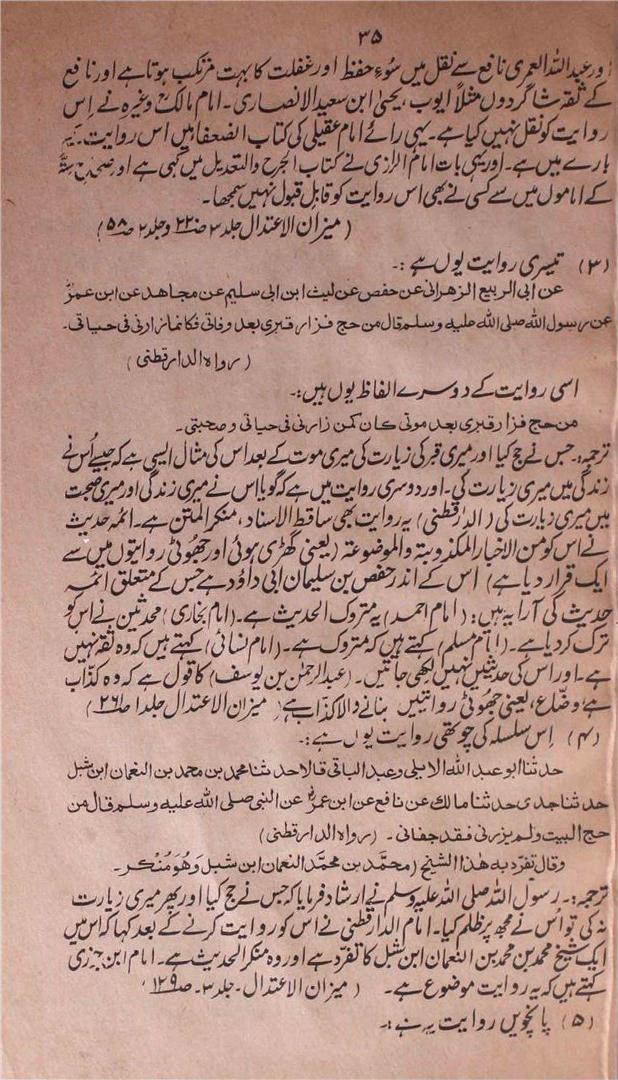 ۳۵
اور عبداللہ العمری نافع سے نقل میں سُوءِ حفظ اور غفلت کا بہت مرتکب ہوتا ہے اور نافع
کے ثقہ شاگردوں مثلاً ایوب، یحییٰ ابن سعید الانصاری۔ امام مالکؒ وغیرہ نے اِس
روایت کو نقل نہیں کیا ہے۔ یہی رائے امام عقیلی کی کتاب الضعفا میں اس روایت کے
بارے میں ہے۔ اور یہی بات امام الرازی نے کتاب الجرح والتعدیل میں کہی ہے اور صحاح ستّہ
کے اماموں میں سے کسی نے بھی اس روایت کو قابلِ قبول نہیں سمجھا۔
(میزان الاعتدال جلد ۳ صـ۲۲ و جلد ۲ صـ۵۸)
(۳) تیسری روایت یوں ہے :۔
عن ابی الربیع الزھرانی عن حفص عن لیث ابن ابی سلیم عن مجاھد عن ابن عمرؓ
عن رسول اللہ صلی اللہ علیہ وسلم قال من حج فزار قبری بعد وفاتی فکانما زارنی فی حیاتی۔
(رواہ الدارقطنی)
اسی روایت کے دوسرے الفاظ یوں ہیں:۔
من حج فزار قبری بعد موتی کان کمن زارنی فی حیاتی و صحبتی۔
ترجمہ:۔ جس نے حج کیا اور میری قبر کی زیارت کی میری موت کے بعد اس کی مثال ایسی ہے کہ جیسے اُس نے
زندگی میں میری زیارت کی۔ اور دوسری روایت میں ہے کہ گویا اس نے میری زندگی اور میری صحبت
میں میری زیارت کی (الدارقطنی) یہ روایت بھی ساقط الاسناد، منکر المتن ہے۔ ائمہ حدیث
نے اس کو من الاخبار المکذوبتہ والموضوعتہ (یعنی گھڑی ہوئی اور جھوٹی روایتوں میں سے
ایک قرار دیا ہے) اس کے اندر حفص بن سلیمان ابی داؤد ہے جس کے متعلق ائمہ
حدیث کی آرا یہ ہیں: (امام احمد) یہ متروک الحدیث ہے۔ (امام بخاری) محدثین نے اس کو
ترک کر دیا ہے۔ (امام مسلم) کہتے ہیں کہ متروک ہے۔ (امام نسائی) کہتے ہیں کہ وہ ثقہ نہیں
ہے۔ اور اس کی حدیثیں نہیں لکھی جاتیں۔ (عبدالرحمٰن بن یوسف) کا قول ہے کہ وہ کذّاب
ہے وضّاع، یعنی جھوٹی روایتیں بنانے والا کذاب ہے (میزان الاعتدال جلد ۱ صـ۲۶۱)
(۴) اِس سلسلہ کی چوتھی روایت یوں ہے:۔
حدثنا ابو عبداللہ الابلی وعبدالباقی قالا حدثنا محمد بن محمد بن النعمان ابن شبل
حدثنا جدی حدثنا مالک عن نافع عن ابن عمرؓ عن النبی صلی اللہ علیہ وسلم قال من
حج البیت ولم یزرنی فقد جفانی۔ (رواہ الدارقطنی)
وقال تفرد بہ ھذا الشیخ (محمّد بن محمّد النعمان ابن شبل وَھُوَ مُنْکَر۔
ترجمہ:۔ رسول اللہ صلی اللہ علیہ وسلم نے ارشاد فرمایا کہ جس نے حج کیا اور پھر میری زیارت
نہ کی تو اُس نے مجھ پر ظلم کیا۔ امام الدارقطنی نے اس کو روایت کرنے کے بعد کہا کہ اس میں
ایک شیخ محمد بن محمد بن النعمان ابن شبل کا تفرّد ہے اور وہ منکر الحدیث ہے۔ امام ابن جزری
کہتے ہیں کہ یہ روایت موضوع ہے۔ (میزان الاعتدال۔ جلد ۳۔ صـ۱۲۹)
(۵) پانچویں روایت یہ ہے:۔